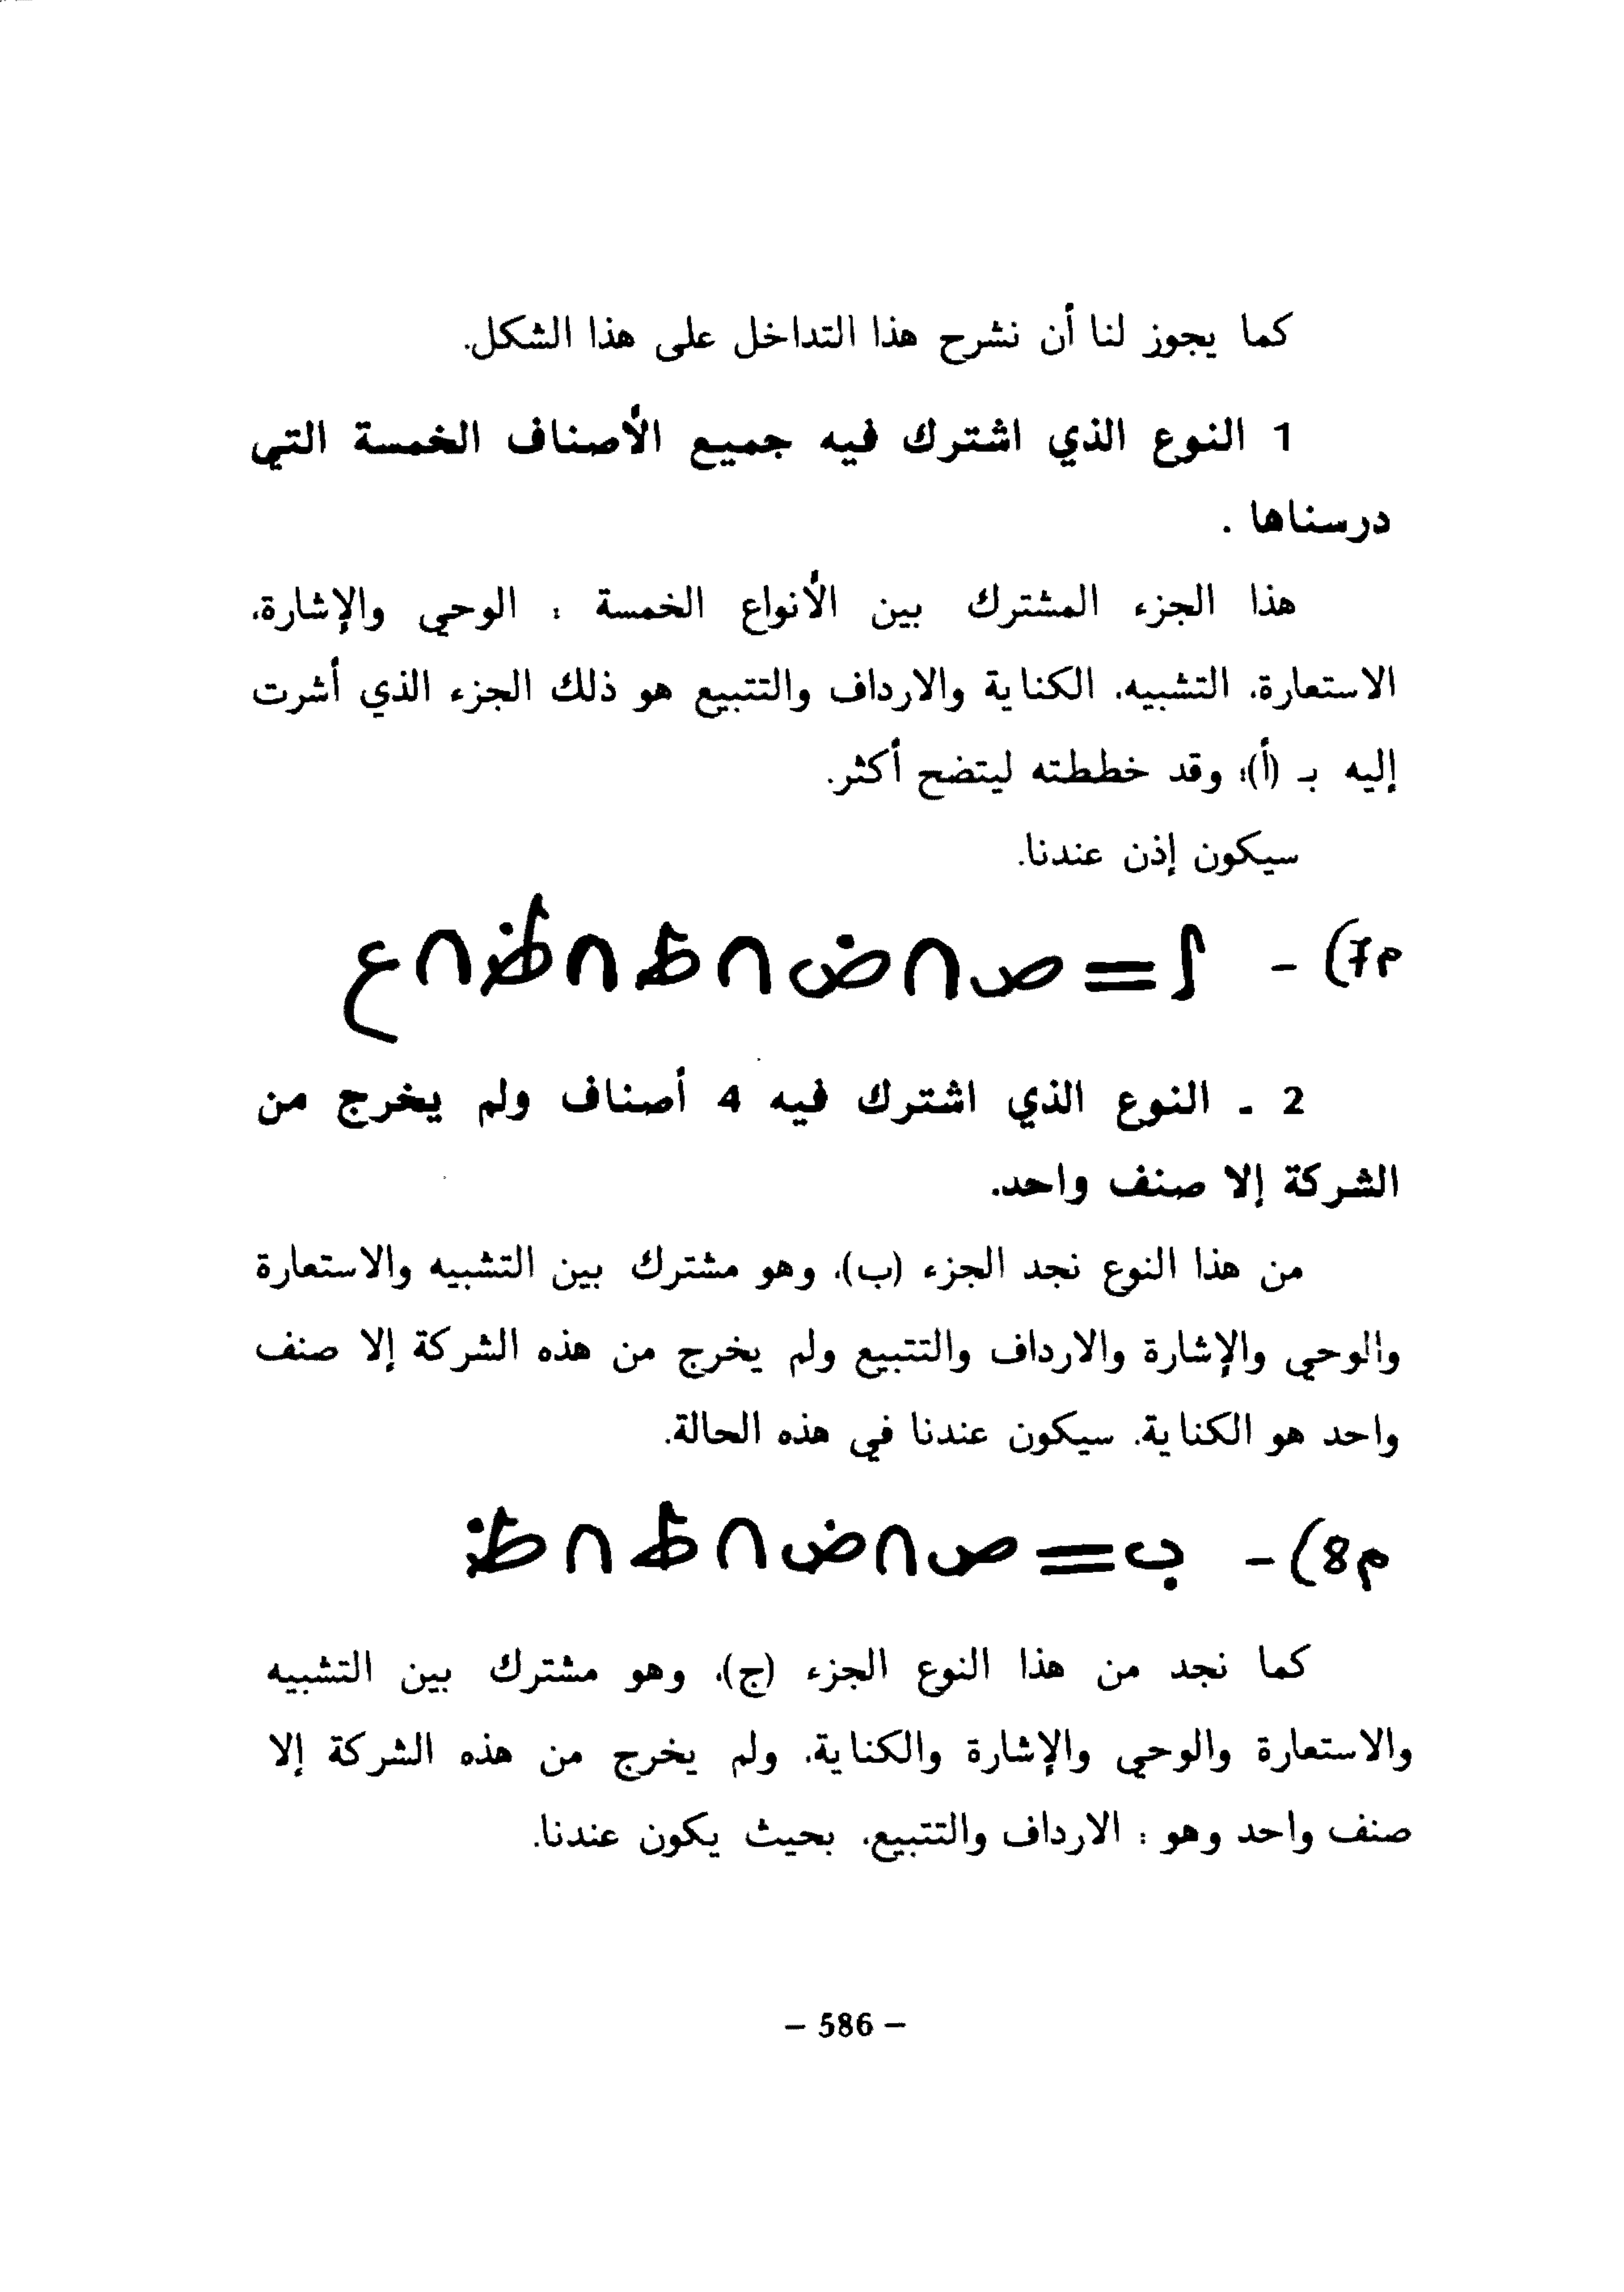 كما يجوز لنا أن نشرح هذا التداخل على هذا الشكل.
1 النوع الذي اشترك فيه جميع الأصناف الخمسة التي
درسناها .
هذا الجزء المشترك بين الأنواع الخمسة : الوحي والإشارة،
الاستعارة، التشبيه، الكناية والارداف والتتبيع هو ذلك الجزء الذي أشرت
إليه بـ (أ)؛ وقد خططته ليتضح أكثر.
سيكون إذن عندنا.
م7) - أ = ص ∩ ض ∩ ط ∩ ظ ∩ ع
2 - النوع الذي اشترك فيه 4 أصناف ولم يخرج من
الشركة إلا صنف واحد.
من هذا النوع نجد الجزء (ب)، وهو مشترك بين التشبيه والاستعارة
والوحي والإشارة والارداف والتتبيع ولم يخرج من هذه الشركة إلا صنف
واحد هو الكناية. سيكون عندنا في هذه الحالة.
م8) - ب = ص ∩ ض ∩ ط ∩ ظ
كما نجد من هذا النوع الجزء (ج)، وهو مشترك بين التشبيه
والاستعارة والوحي والإشارة والكناية، ولم يخرج من هذه الشركة إلا
صنف واحد وهو : الارداف والتتبيع، بحيث يكون عندنا.
- 586 -